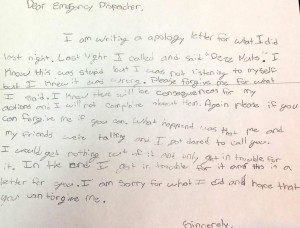 Dear Emergency Dispatcher,
I am writing a apology letter for what I did
last night. Last night I called and said "Deez Nuts". I
knew this was stupid but I was not listening to myself
but I knew it was wrong. Please forgive me for what
I said. I know there will be consequences for my
actions and I will not complain about them. Again please if you
can forgive me if you can. What happened was that me and
my friends were talking and I got dared to call you.
I would get nothing out of it not only get in trouble for
it. In the end I got in trouble for it and this is a
letter for you. I am sorry for what I did and hope that
you can forgive me.
Sincerely,